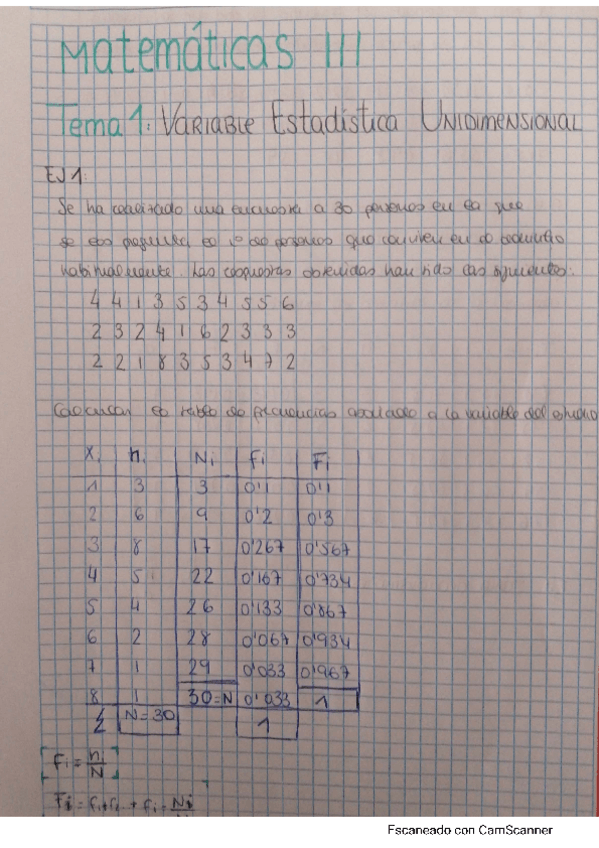 Matemáticas III
Tema 1: Variable Estadística Unidimensional
EJ 1:
Se ha realizado una encuesta a 30 personas en la que
se les pregunta el nº de personas que conviven en el domicilio
habitualmente. Las respuestas obtenidas han sido las siguientes:
4 4 1 3 5 3 4 5 5 6
2 3 2 4 1 6 2 3 3 3
2 2 1 8 3 5 3 4 7 2
Calcular la tabla de frecuencias asociada a la variable del estudio
xi ni Ni fi Fi
1 3 3 0'1 0'1
2 6 9 0'2 0'3
3 8 17 0'267 0'567
4 5 22 0'167 0'734
5 4 26 0'133 0'867
6 2 28 0'067 0'934
7 1 29 0'033 0'967
8 1 30=N 0'033 1
Σ N=30 1
fi = ni/N
Fi = Ni
Escaneado con CamScanner